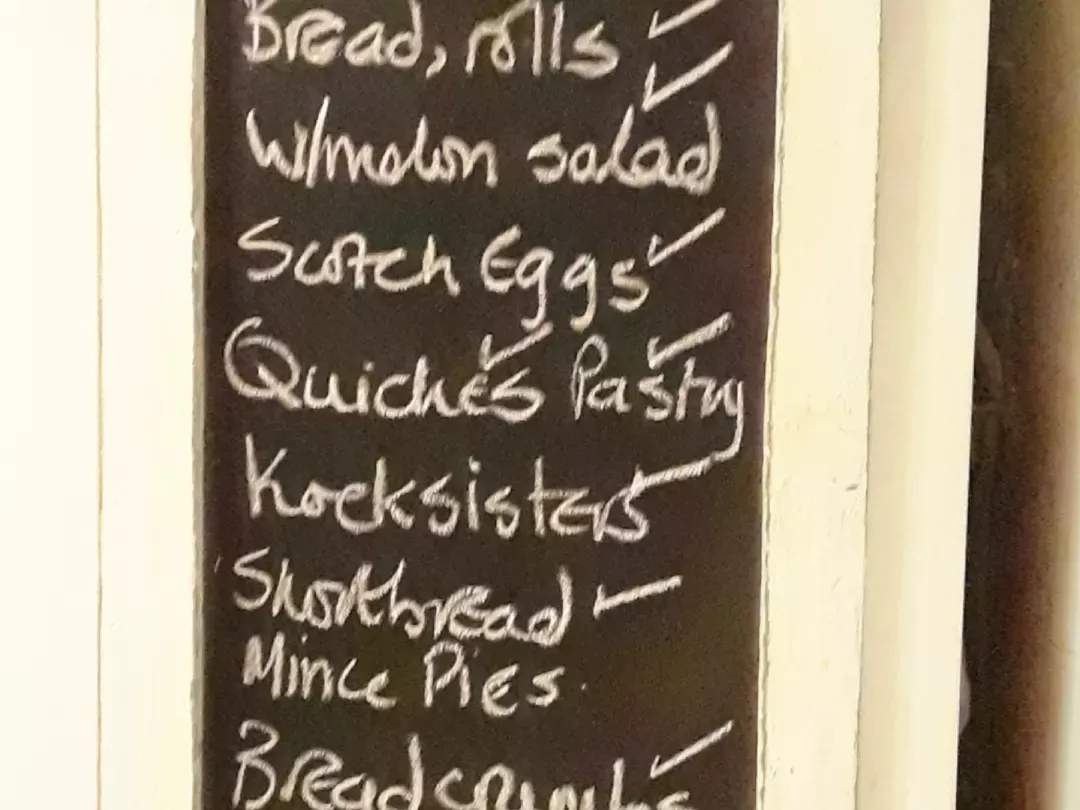 Bread, rolls ✓
W/melon salad ✓
Scotch Eggs ✓
Quiches ✓ Pastry ✓
Kocksisters ✓
Shortbread ✓
Mince Pies
Breadcrumbs ✓